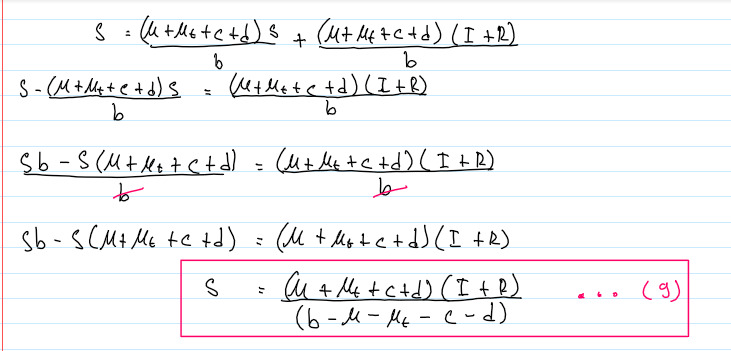 S = (μ+μt+c+d) S / b + (μ+μt+c+d) (I+R) / b
S - (μ+μt+c+d) S / b = (μ+μt+c+d) (I+R) / b
Sb - S(μ+μt+c+d) / b = (μ+μt+c+d) (I+R) / b
Sb - S(μ+μt+c+d) = (μ+μt+c+d) (I+R)
S = (μ+μt+c+d) (I+R) / (b-μ-μt-c-d) ... (9)